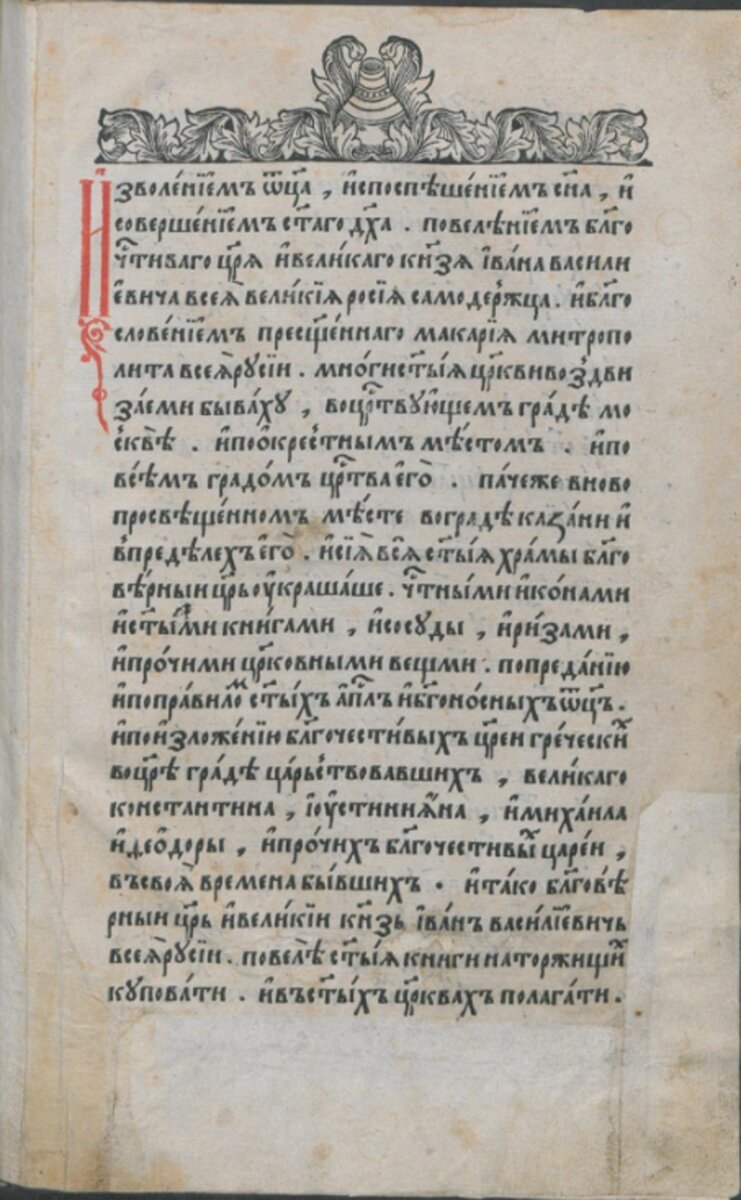 И҆зволе́нїемъ ѿц҃а , и҆споспѣше́нїемъ сн҃а , и҆
соверше́нїемъ ст҃а́го дх҃а . повелѣ́нїемъ бл҃го
чт҃иваго цр҃я и҆вели́каго кн҃зя і҆ва́на васили
е҆вича всея҆̀ вели́кїя росїя самоде́ржца . и҆бл҃го
слове́нїемъ пресщ҃е́ннаго мака́рїя митропо
лита всея҆̀ рꙋсїи . мно́ги ст҃ы́я цр҃кви воз̾дви
за́еми быва́хꙋ , воцр҃твꙋ́ющемъ гра́дѣ мо
с̾квѣ̀ . и҆поѻ҆кре́стнымъ мѣ́стомъ . и҆по
всѣ́мъ градо́мъ цр҃тва є҆гѡ̀ . па́чеже вново
просвѣще́нномъ мѣ́сте воградѣ каза́ни и҆
впредѣ́лехъ є҆гѡ̀ . и҆сїя҆̀ вся҆̀ ст҃ы́я хра́мы бл҃го
вѣ́рныи цр҃ь оу҆краша́ше . чт҃ны́ми и҆ко́нами
и҆ст҃ы́ми кни́гами , и҆сосꙋды , и҆ри́зами ,
и҆про́чими цр҃ко́вными вещми . попреда́нїю
и҆попра́вилом ст҃ы́хъ а҆пл҃ъ и҆бг҃оно́сныхъ ѿц҃ъ .
и҆пои҆зложе́нїю бл҃гочести́выхъ цр҃еи гре́чески́х
воцр҃ѣ гра́дѣ ца́рьствовавшихъ , вели́каго
константина , і҆оу҆стиния҆́на , и҆миха́ила
и҆ѳеѻ҆́доры , и҆про́чихъ бл҃гочестивы́х царе́и ,
въсвоя҆̀ времена бы́вших . и҆та́ко бл҃говѣ́
рныи цр҃ь и҆вели́кїи кн҃зь і҆ва́нъ васи́лїевичь
всея҆̀ рꙋсїи . повелѣ̀ ст҃ы́я книги на торжищи́х
кꙋпова́ти . и҆въст҃ы́хъ цр҃квахъ полага́ти .